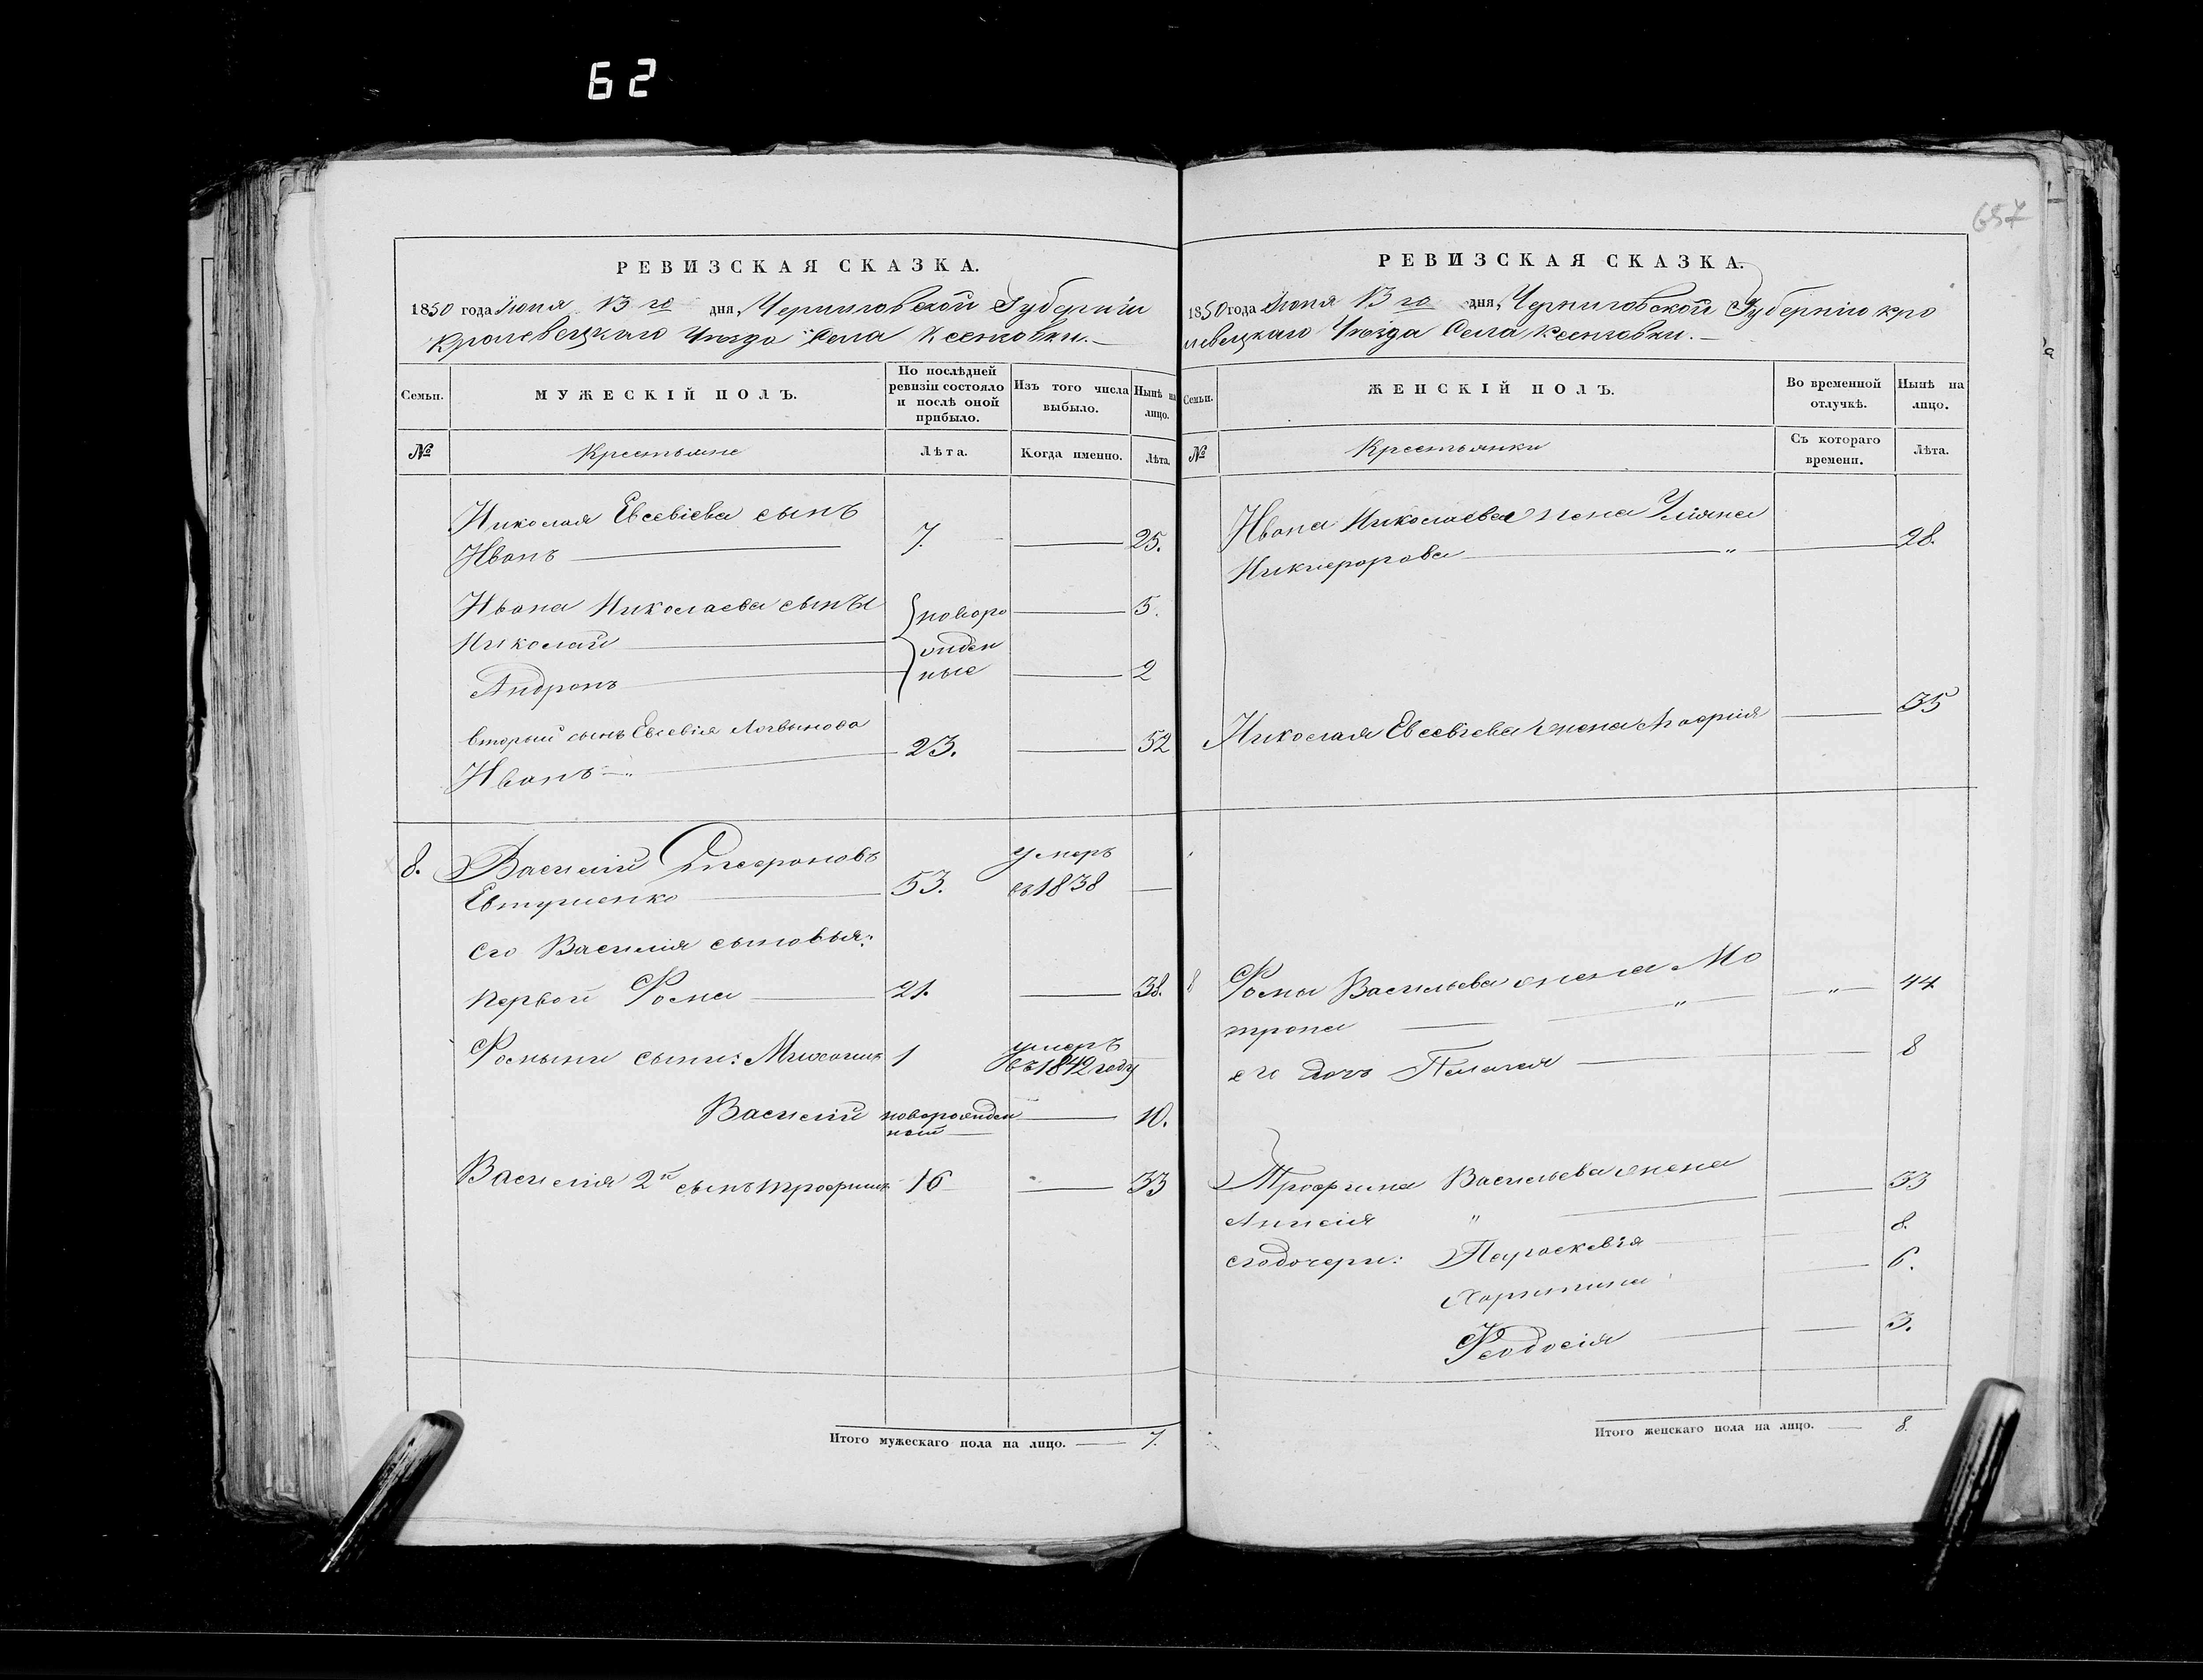 62
657
РЕВИЗСКАЯ СКАЗКА.
1850 года Июня 13 го дня, Черниговской Губерніи
Кролевецкаго Уезда Села Ксензовки.
Семьи.
МУЖЕСКІЙ ПОЛЪ.
По послѣдней ревизіи состояло и послѣ оной прибыло.
Изъ того числа выбыло.
Нынѣ на лицо.
№
Крестьяне
Лѣта.
Когда именно.
Лѣта.
Николая Евсевіева сынъ
Иванъ 7. 25.
Ивана Николаева сыны
Николай новоро 5.
жден
Андронъ ные 2
вторый сынъ Евсевія Логвынова
Иванъ 23. 52
8. Василий умеръ
Евтушенко 53. въ 1838
Его Василія сыновья:
первой Фома 21. 38.
Фомыны сыны: 1 умеръ
въ 1842 году
Василий новорожден 10.
ный
Василия 2й сынъ трофимъ 16 33
Итого мужескаго пола на лицо. 7.
РЕВИЗСКАЯ СКАЗКА.
1850 года Июня 13 го дня, Черниговской Губерніи кро
левецкаго Уезда Села Ксензовки.
Семьи.
ЖЕНСКІЙ ПОЛЪ.
Во временной отлучкѣ.
Нынѣ на лицо.
№
Крестьянки
Съ котораго времени.
Лѣта.
Ивана Николаева жена Уліяна
Никифорова " 28.
Николая Евсевіева жена Агафия 35
8 Фомы Васильева жена Мо
трона " " 44
его дочь Пелагея 8
Трофима Васильева жена 33
Анисія "
его дочери: Параскевія 8.
Харитина 6.
Феодосія 3.
Итого женскаго пола на лицо. 8.